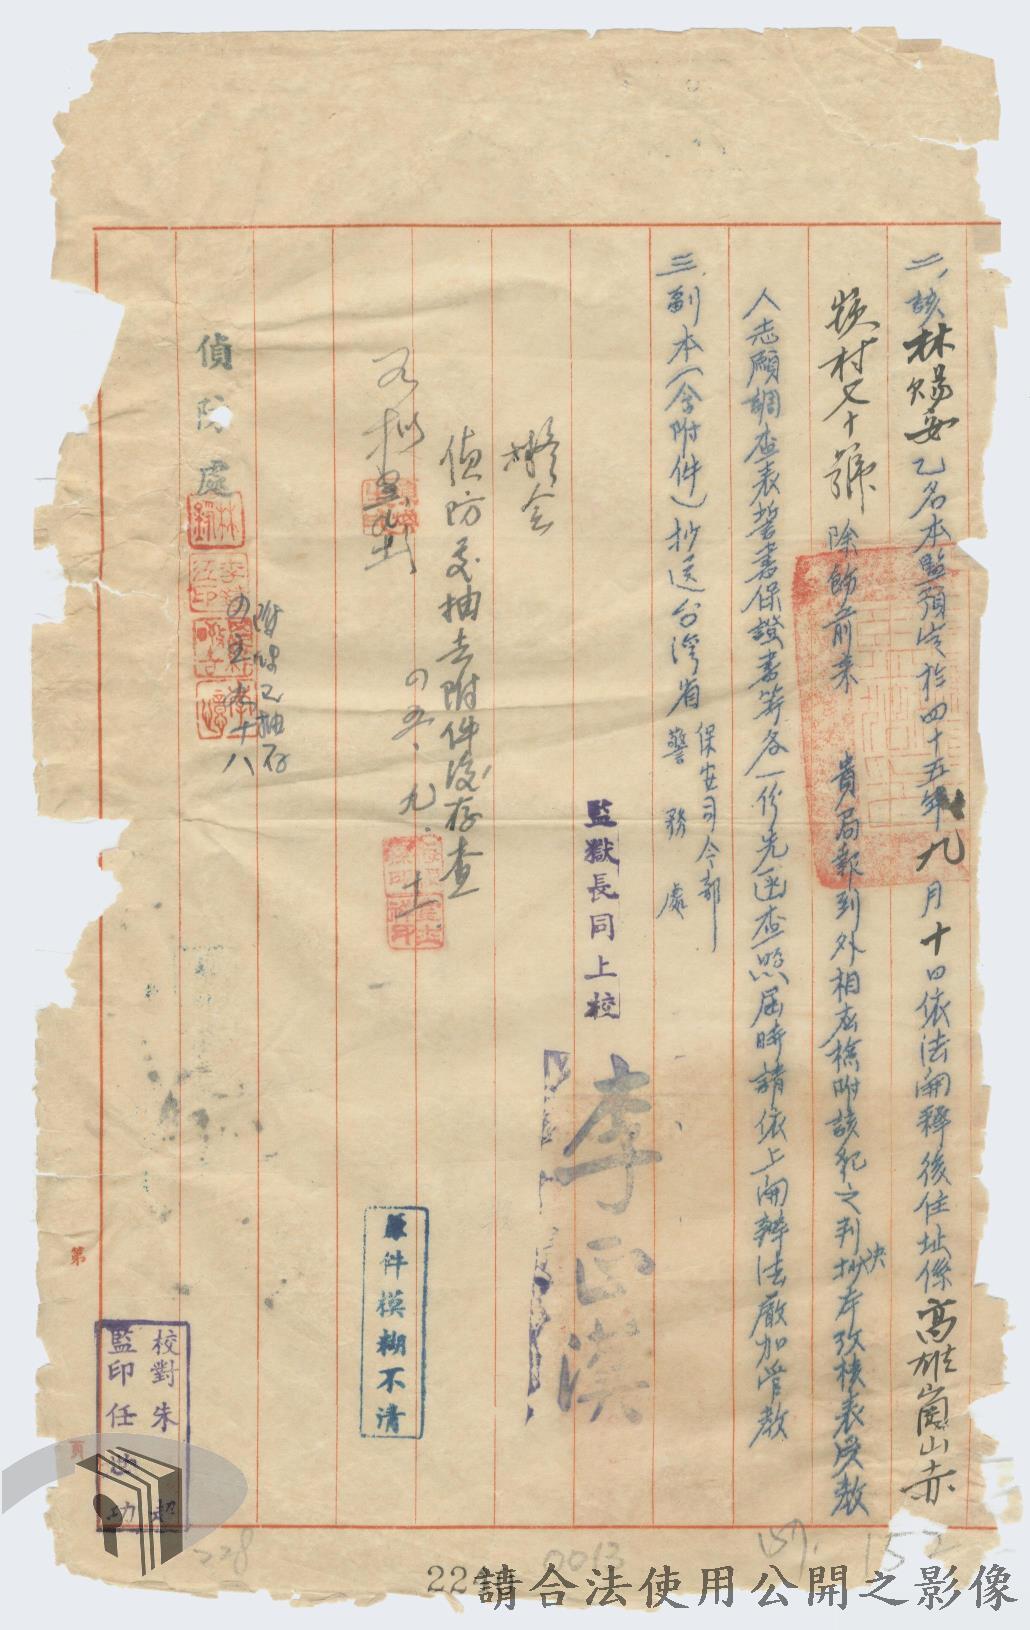 二、該林賜安乙名本監預定於四十五年九月十日依法開釋後住址係高雄崗山赤
崁村七十號除飭前来　貴局報到外相应檢附該犯之判決抄本攷核表受教
人志願調查表誓書保證書等各一份先函查照屆時請依上開辦法嚴加管教
三、副本(含附件)抄送台灣省保安司令部
警務處
監獄長同上校 李正漢
擬会
偵防
抽去附件後存查
九、十一
偵防處
附件已抽存
十八
原件模糊不清
校對朱 超
監印任 功
第
頁
228
0013
152
224
請合法使用公開之影像